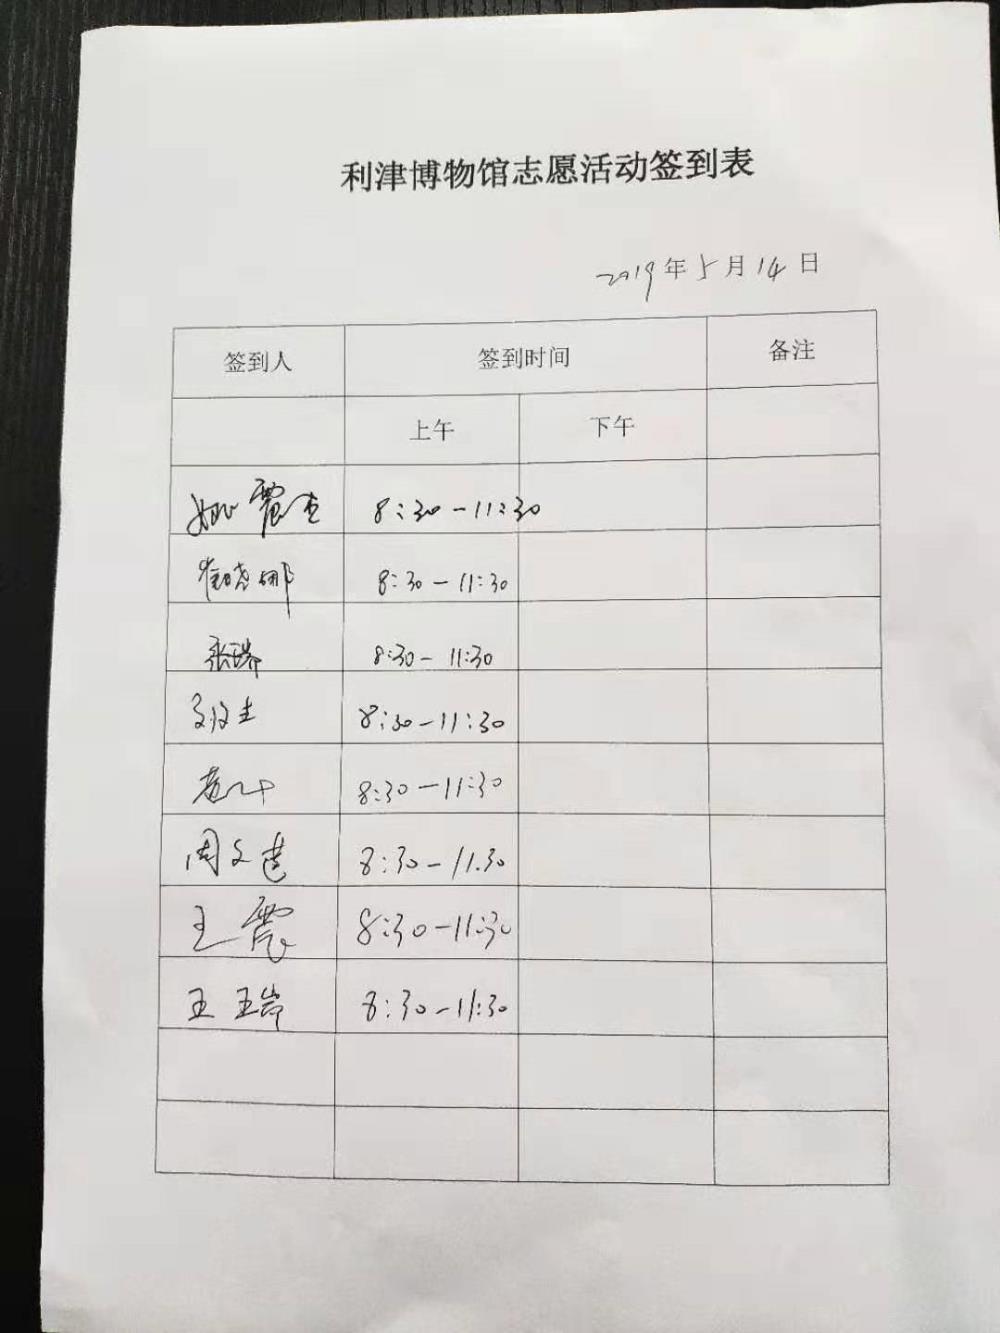 利津博物馆志愿活动签到表
2019年5月14日
签到人 签到时间 备注
上午 下午
姚震 8:30-11:30
崔晓娜 8:30-11:30
张瑞 8:30-11:30
8:30-11:30
8:30-11:30
周文建 8:30-11.30
王震 8:30-11:30
王瑞 8:30-11:30